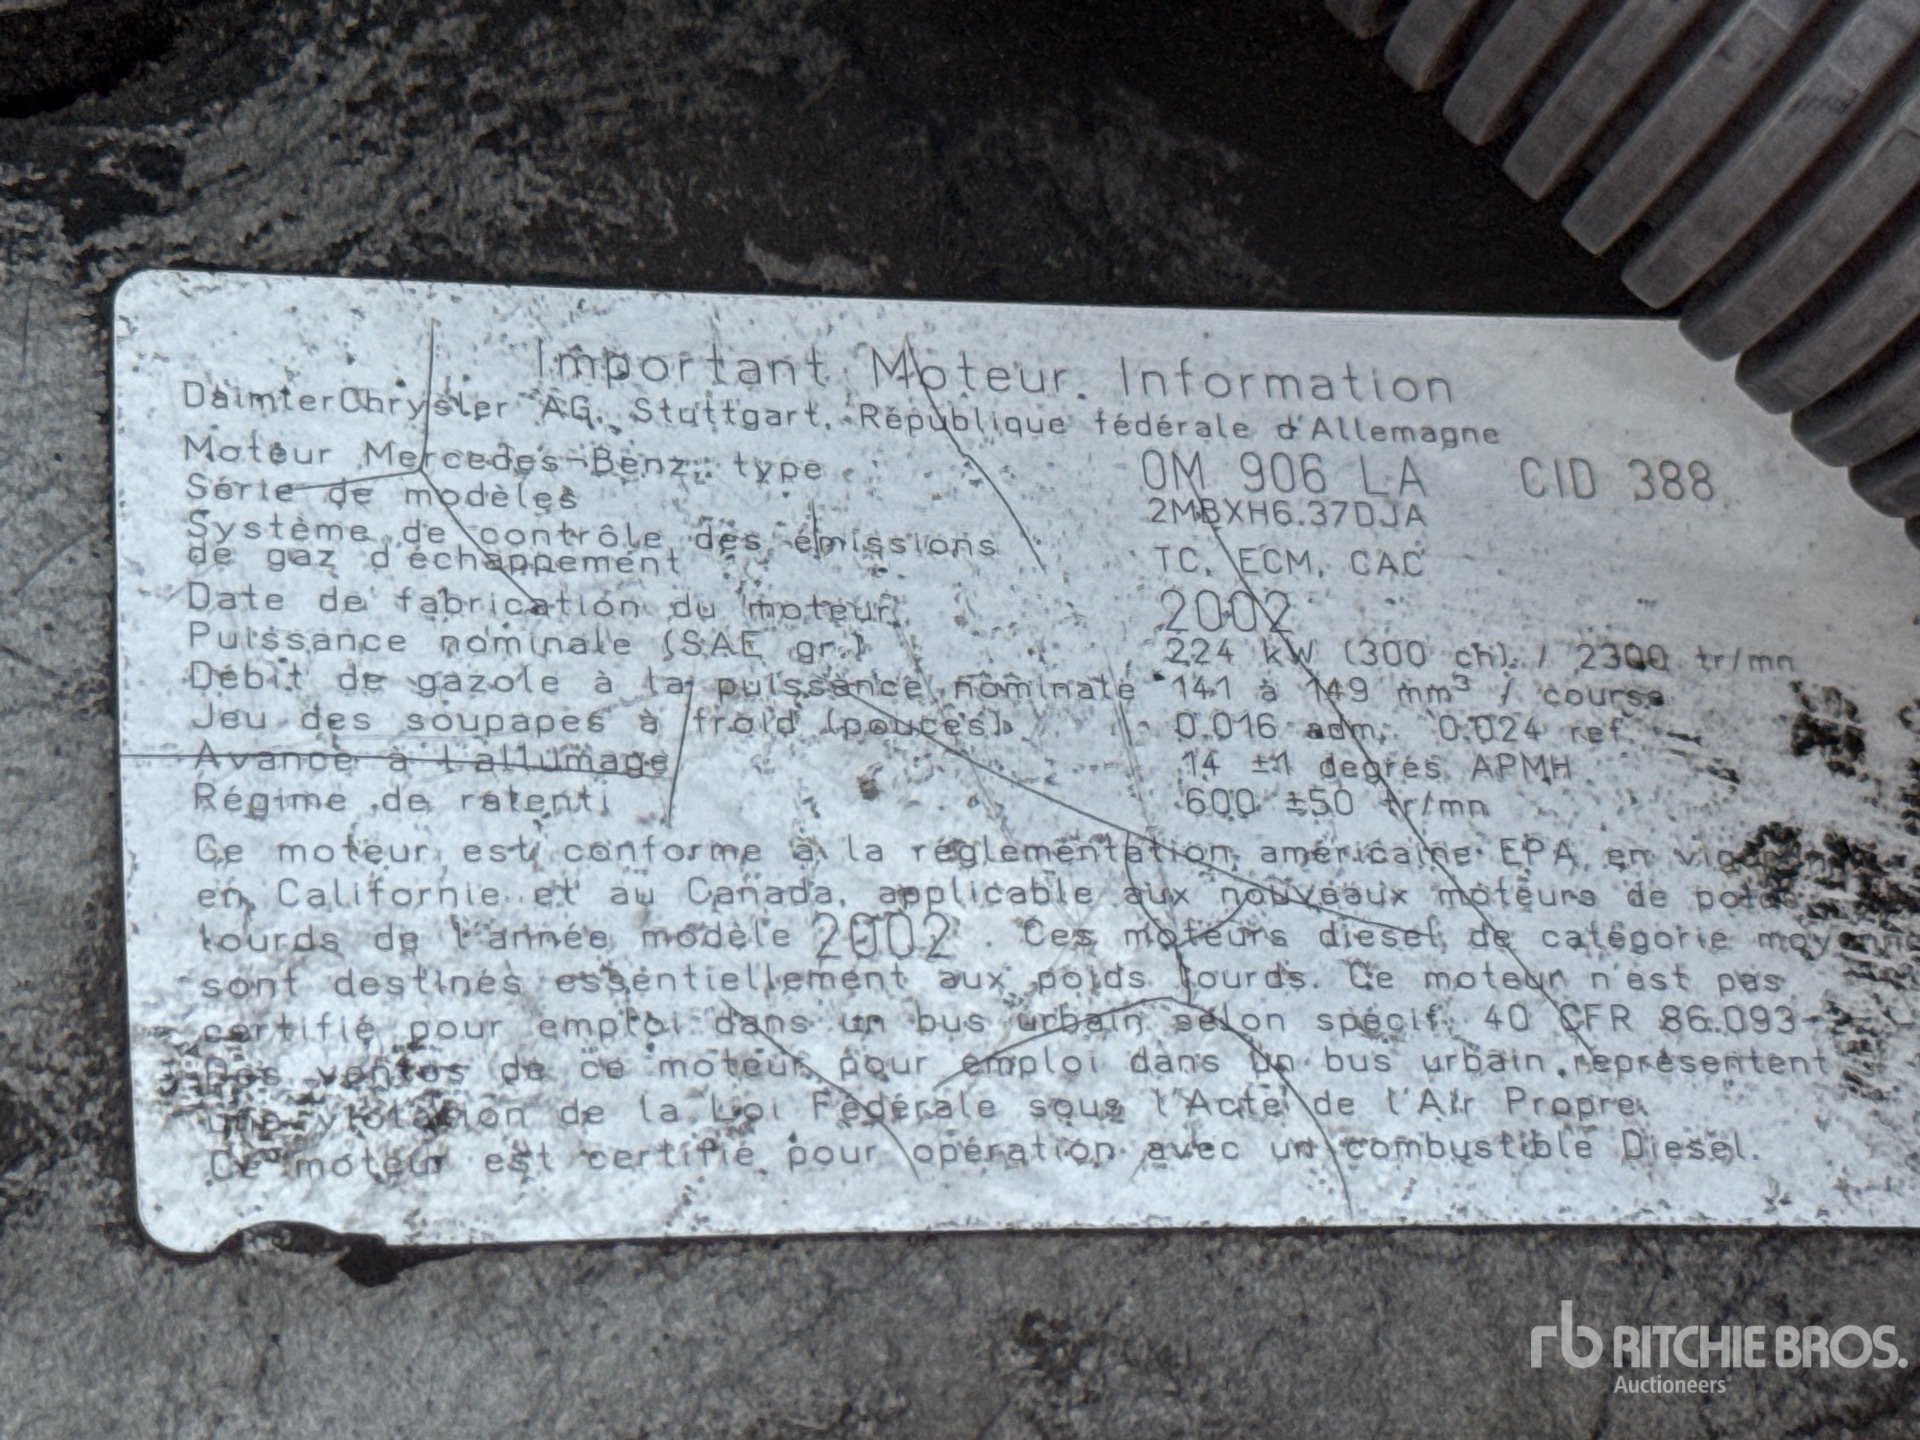 Important Moteur Information
DaimlerChrysler AG, Stuttgart, République fédérale d'Allemagne
Moteur Mercedes-Benz, type OM 906 LA CID 388
Série de modèles 2MBXH6.37DJA
Système de contrôle des émissions
de gaz d'échappement TC, ECM, CAC
Date de fabrication du moteur 2002
Puissance nominale (SAE gr.) 224 kW (300 ch) / 2300 tr/mn
Débit de gazole à la puissance nominale 141 à 149 mm³ / course
Jeu des soupapes à froid (pouces) 0.016 adm, 0.024 ref.
Avance à l'allumage 14 ±1 degrés APMH
Régime de ralenti 600 ±50 tr/mn
Ce moteur est conforme à la réglementation américaine EPA en
en Californie et au Canada, applicable aux nouveaux moteurs de poids
lourds de l'année modèle 2002. Ces moteurs diesel de catégorie moyenne
sont destinés essentiellement aux poids lourds. Ce moteur n'est pas
certifié pour emploi dans un bus urbain selon spécif. 40 CFR 86.093-
Des ventes de ce moteur pour emploi dans un bus urbain représentent
une violation de la Loi Fédérale sous l'Acte de l'Air Propre.
Ce moteur est certifié pour opération avec un combustible Diesel.
rb RITCHIE BROS.
Auctioneers